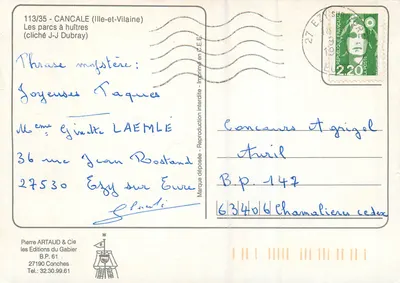 113/35 - CANCALE (Ille-et-Vilaine)
Les parcs à huîtres
(cliché J-J Dubray)
Phrase mystère:
Joyeuses Paques
Meme Ginette LAEMLÉ
36 rue Jean Rostand
27530 Ezy sur Eure
Pierre ARTAUD & Cie
les Editions du Gabier
B.P. 61
27190.Conches
Tel.: 32.30.99.61
Marque déposée - Reproduction interdite - Imprimé en C.E.E.
27 E
2,20
Concours Agrigel
Avril
B.p. 147
63406 Chamalieres cedex